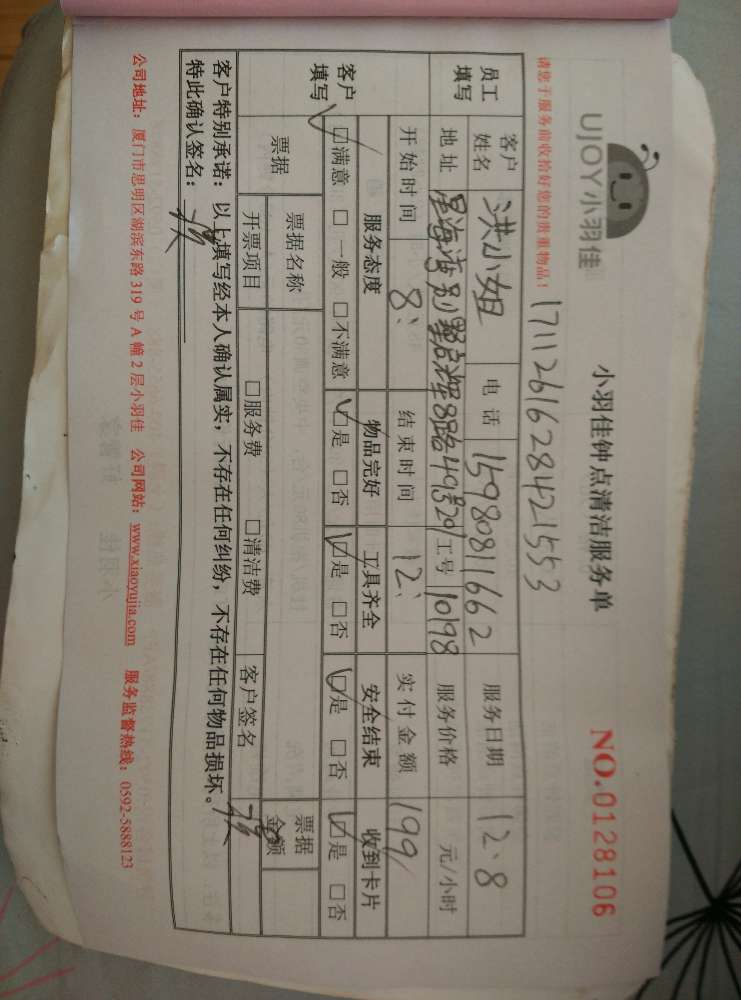 UJOY小羽佳
小羽佳钟点清洁服务单
NO.0128106
请您于服务前收拾好您的贵重物品！
171126162842 1553
员工填写
客户姓名 洪小姐 电话 15980811662 服务日期 12.8
地址 工号 10198 服务价格 元/小时
开始时间 8: 结束时间 12: 实付金额 199
客户填写
服务态度 物品完好 工具齐全 安全结束 收到卡片
□满意 □一般 □不满意 □是 □否 □是 □否 □是 □否 □是 □否
票据 票据名称 票据金额
开票项目 □服务费 □清洁费 客户签名
客户特别承诺：以上填写经本人确认属实，不存在任何纠纷，不存在任何物品损坏。
特此确认签名：
公司地址：厦门市思明区湖滨东路 319 号 A 幢 2 层小羽佳 公司网站：www.xiaoyujia.com 服务监督热线：0592-5888123